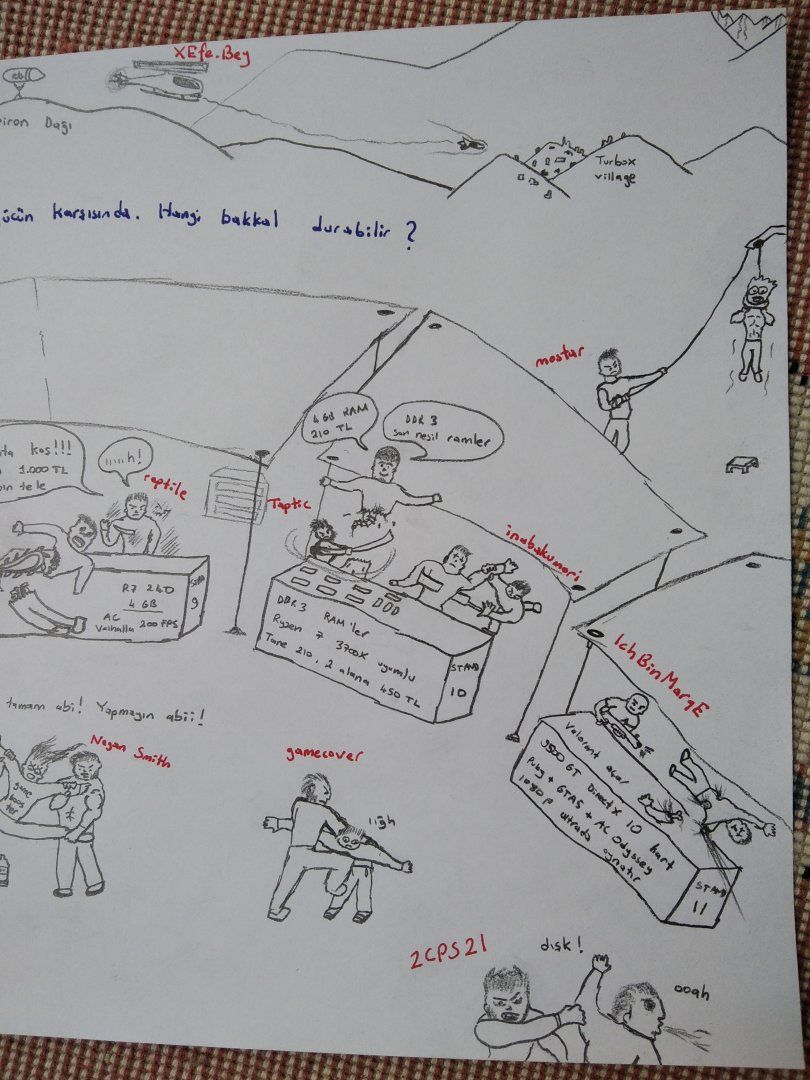 XEfe.Bey
Dağı
Turbox
village
karşısında. Hangi bakkal durabilir ?
mostar
4 GB RAM
210 TL
DDR 3
son resil ramler
kos!!!
1.000 TL
raptile
Taptic
inabakumori
R7 240
4 GB
AC
Valhalla 200 FPS
STAND
9
DDR3 RAM'ler
Ryzen 7 3700X uyumlu
Tane 210, 2 alana 450 TL
STAND
10
IchBinMarqE
Valorant açar
9500 GT DirectX 10 kart
Pubg + GTA5 + AC Odyssey
1080p ultrada oynatır
STAND
11
tamam abi! Yapmayın abii!
Negan Smith
gamecover
ııgh
2CPS21
dışk!
ooah